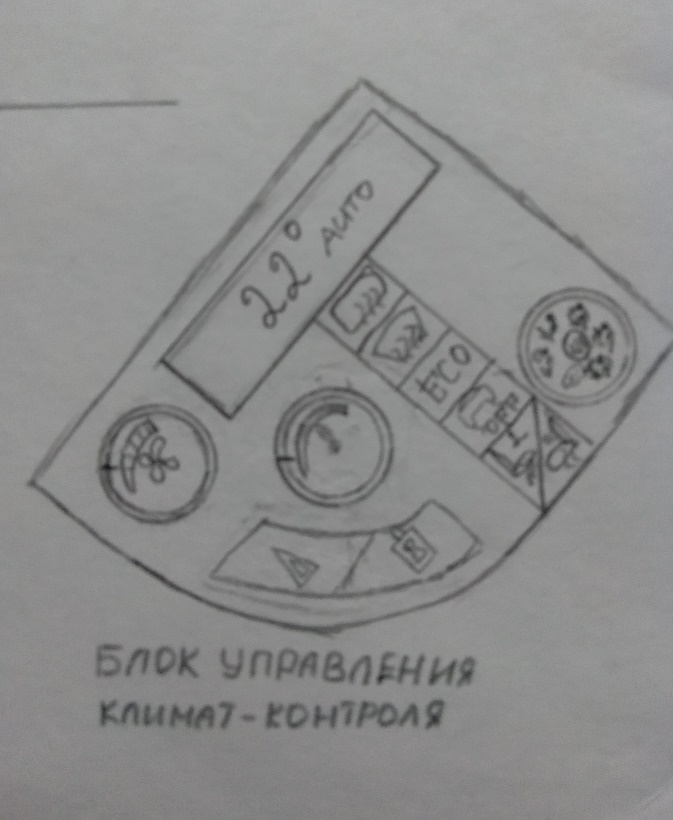 22° AUTO
ECO
OFF
БЛОК УПРАВЛЕНИЯ
КЛИМАТ-КОНТРОЛЯ